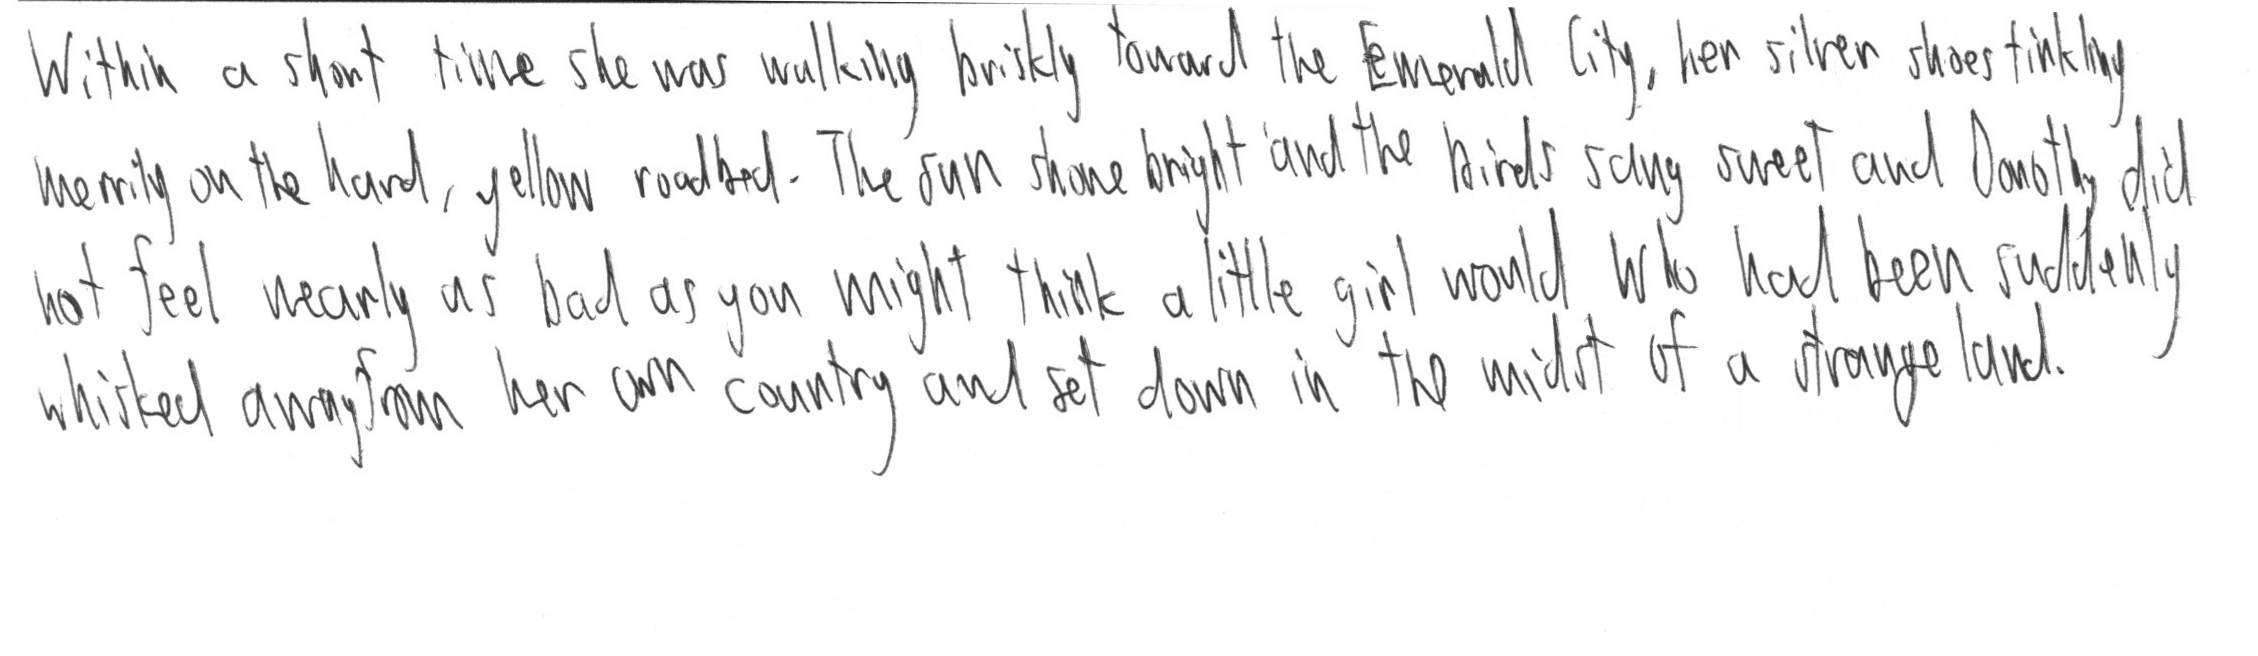 Within a short time she was walking briskly toward the Emerald City, her silver shoes tinkling
merrily on the hard, yellow roadbed. The sun shone bright and the birds sang sweet and Dorothy did
not feel nearly as bad as you might think a little girl would who had been suddenly
whisked away from her own country and set down in the midst of a strange land.